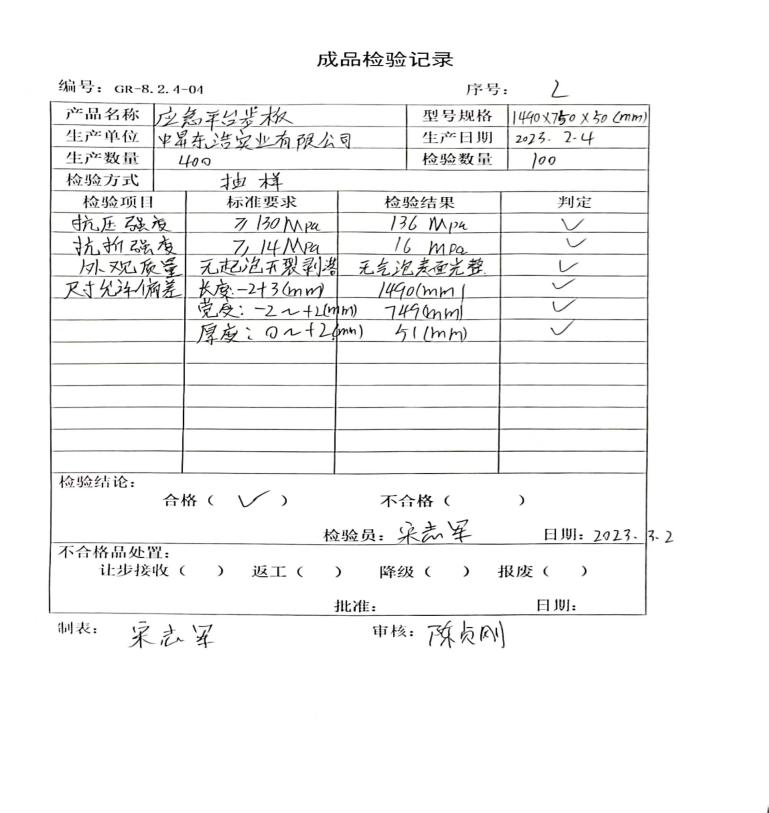 成品检验记录
编号: GR-8.2.4-04 序号: 2
产品名称 应急平台步板 型号规格 1490X750X50(mm)
生产单位 中昇东浩实业有限公司 生产日期 2023. 2-4
生产数量 400 检验数量 100
检验方式 抽样
检验项目 标准要求 检验结果 判定
抗压强度 ≥130Mpa 136 Mpa ✓
抗折强度 ≥14Mpa 16 mpa ✓
外观质量 无起泡开裂剥落 无气泡表面完整. ✓
尺寸允许偏差 长度:-2+3(mm) 1490(mm) ✓
宽度:-2~+2(mm) 749(mm) ✓
厚度:0~+2(mm) 51(mm) ✓
检验结论:
合格( ✓ ) 不合格( )
检验员: 宋志军 日期: 2023.3.2
不合格品处置:
让步接收( ) 返工( ) 降级( ) 报废( )
批准: 日期:
制表: 宋志军 审核: 陈贞刚